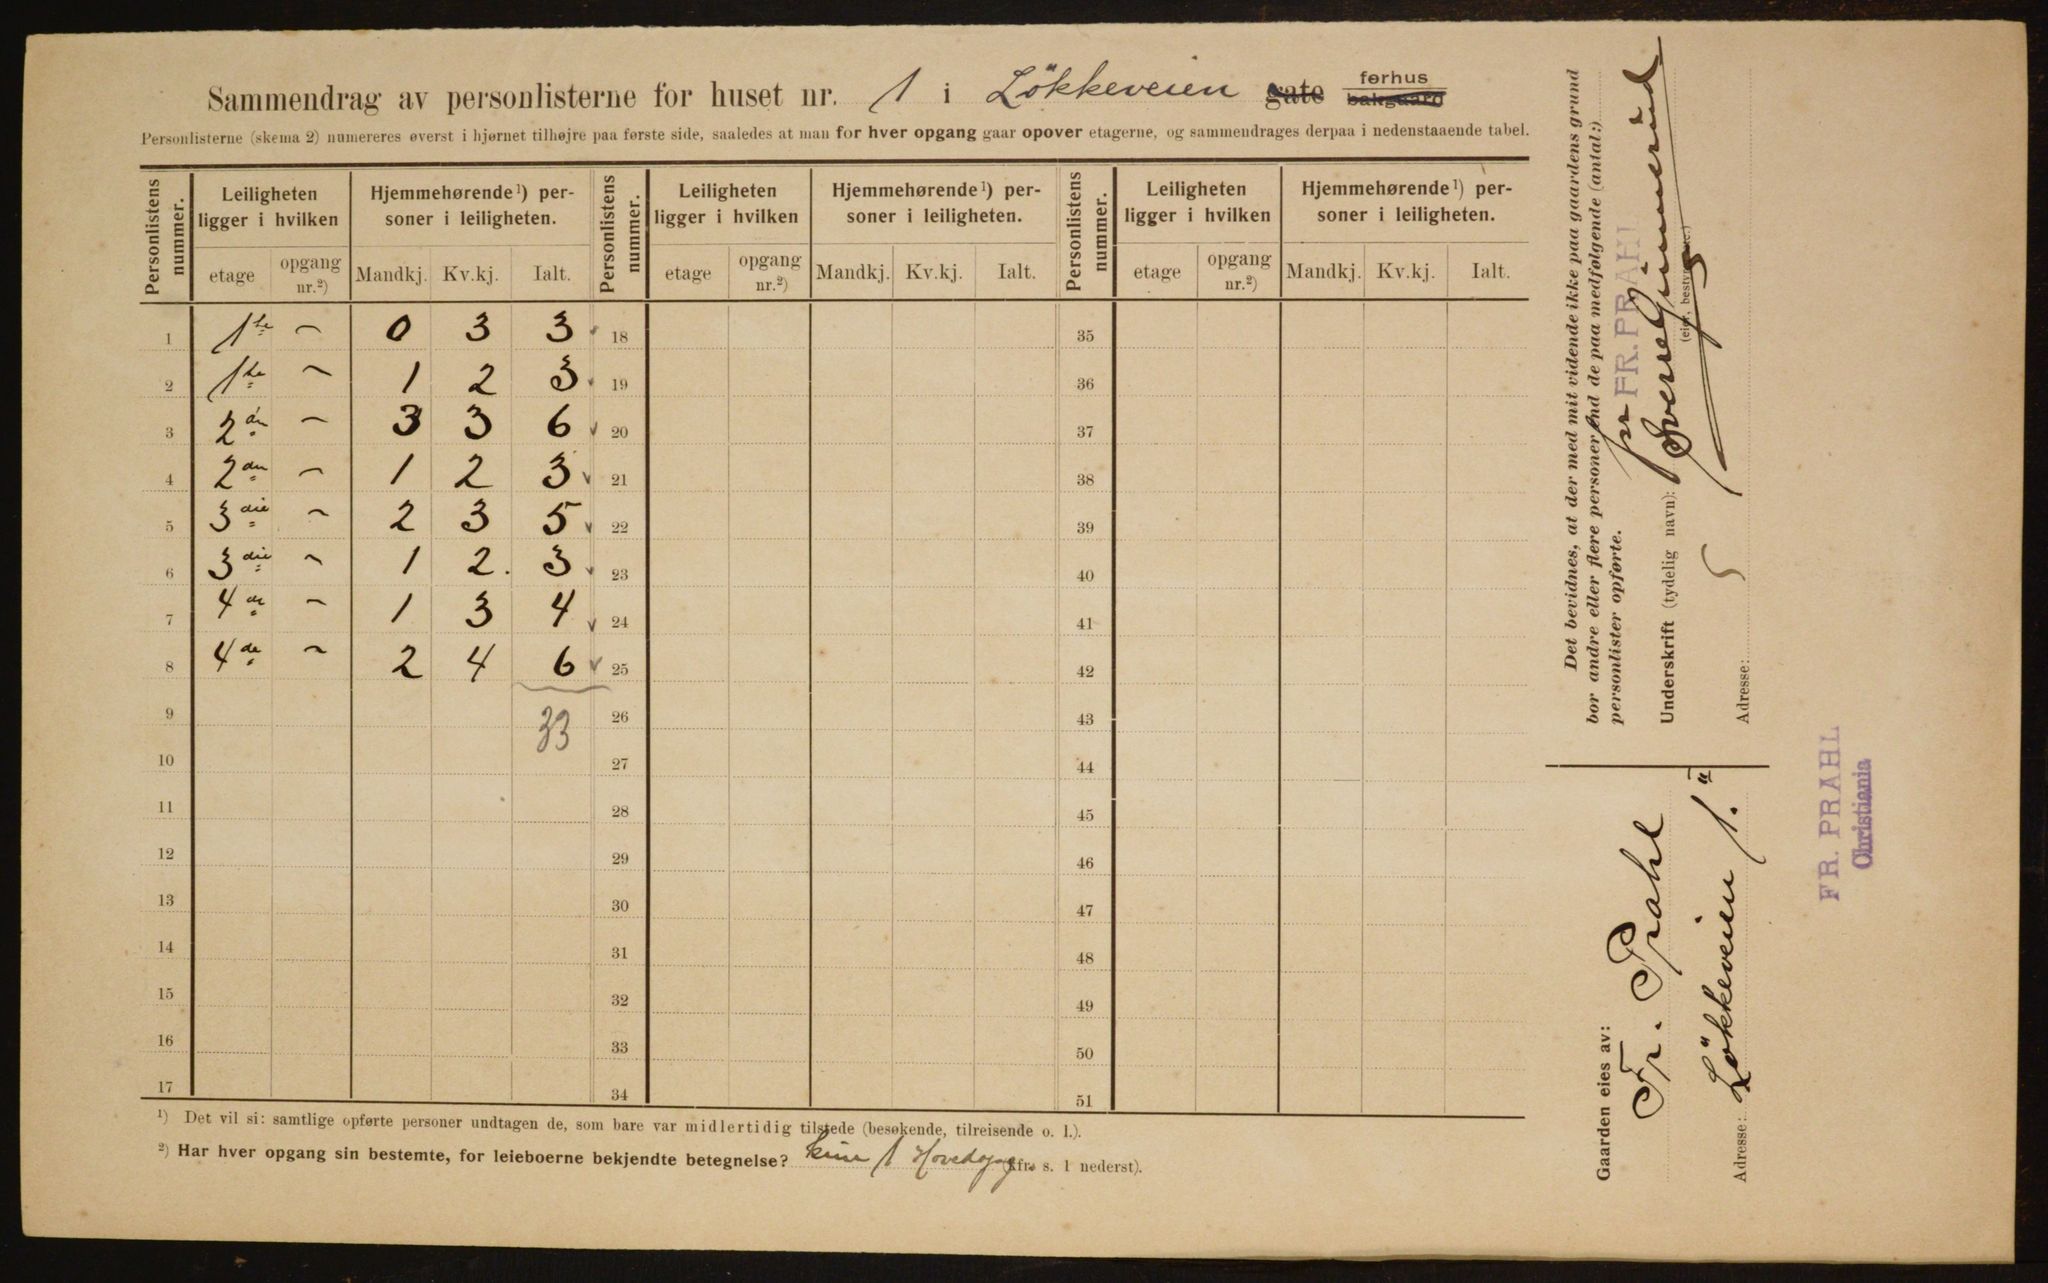 Sammendrag av personlisterne for huset nr. 1 i Lökkeveien gate forhus bakgaard
Personlisterne (skema 2) numereres øverst i hjørnet tilhøjre paa første side, saaledes at man for hver opgang gaar opover etagerne, og sammendrages derpaa i nedenstaaende tabel.
Personlistens nummer. Leiligheten ligger i hvilken Hjemmehørende¹) personer i leiligheten. Personlistens nummer. Leiligheten ligger i hvilken Hjemmehørende¹) personer i leiligheten. Personlistens nummer. Leiligheten ligger i hvilken Hjemmehørende¹) personer i leiligheten.
etage opgang nr.²) Mandkj. Kv.kj. Ialt. etage opgang nr.²) Mandkj. Kv.kj. Ialt. etage opgang nr.²) Mandkj. Kv.kj. Ialt.
1 1ste ~ 0 3 3 18 35
2 1ste ~ 1 2 3 19 36
3 2den ~ 3 3 6 20 37
4 2den ~ 1 2 3 21 38
5 3die ~ 2 3 5 22 39
6 3die ~ 1 2. 3 23 40
7 4de ~ 1 3 4 24 41
8 4de ~ 2 4 6 25 42
9 33 26 43
10 27 44
11 28 45
12 29 46
13 30 47
14 31 48
15 32 49
16 33 50
17 34 51
¹) Det vil si: samtlige opførte personer undtagen de, som bare var midlertidig tilstede (besøkende, tilreisende o. l.).
²) Har hver opgang sin bestemte, for leieboerne bekjendte betegnelse? kun 1 Hovedopg. (kfr. s. 1 nederst).
Det bevidnes, at der med mit vidende ikke paa gaardens grund
bor andre eller flere personer end de paa medfølgende (antal:)
personlister opførte.
pr FR. PRAHL
Underskrift (tydelig navn):
(eier, bestyrer etc.)
Adresse:
Gaarden eies av:
Fr. Prahl
Adresse: Lökkeveien 1.
FR. PRAHL
Christiania